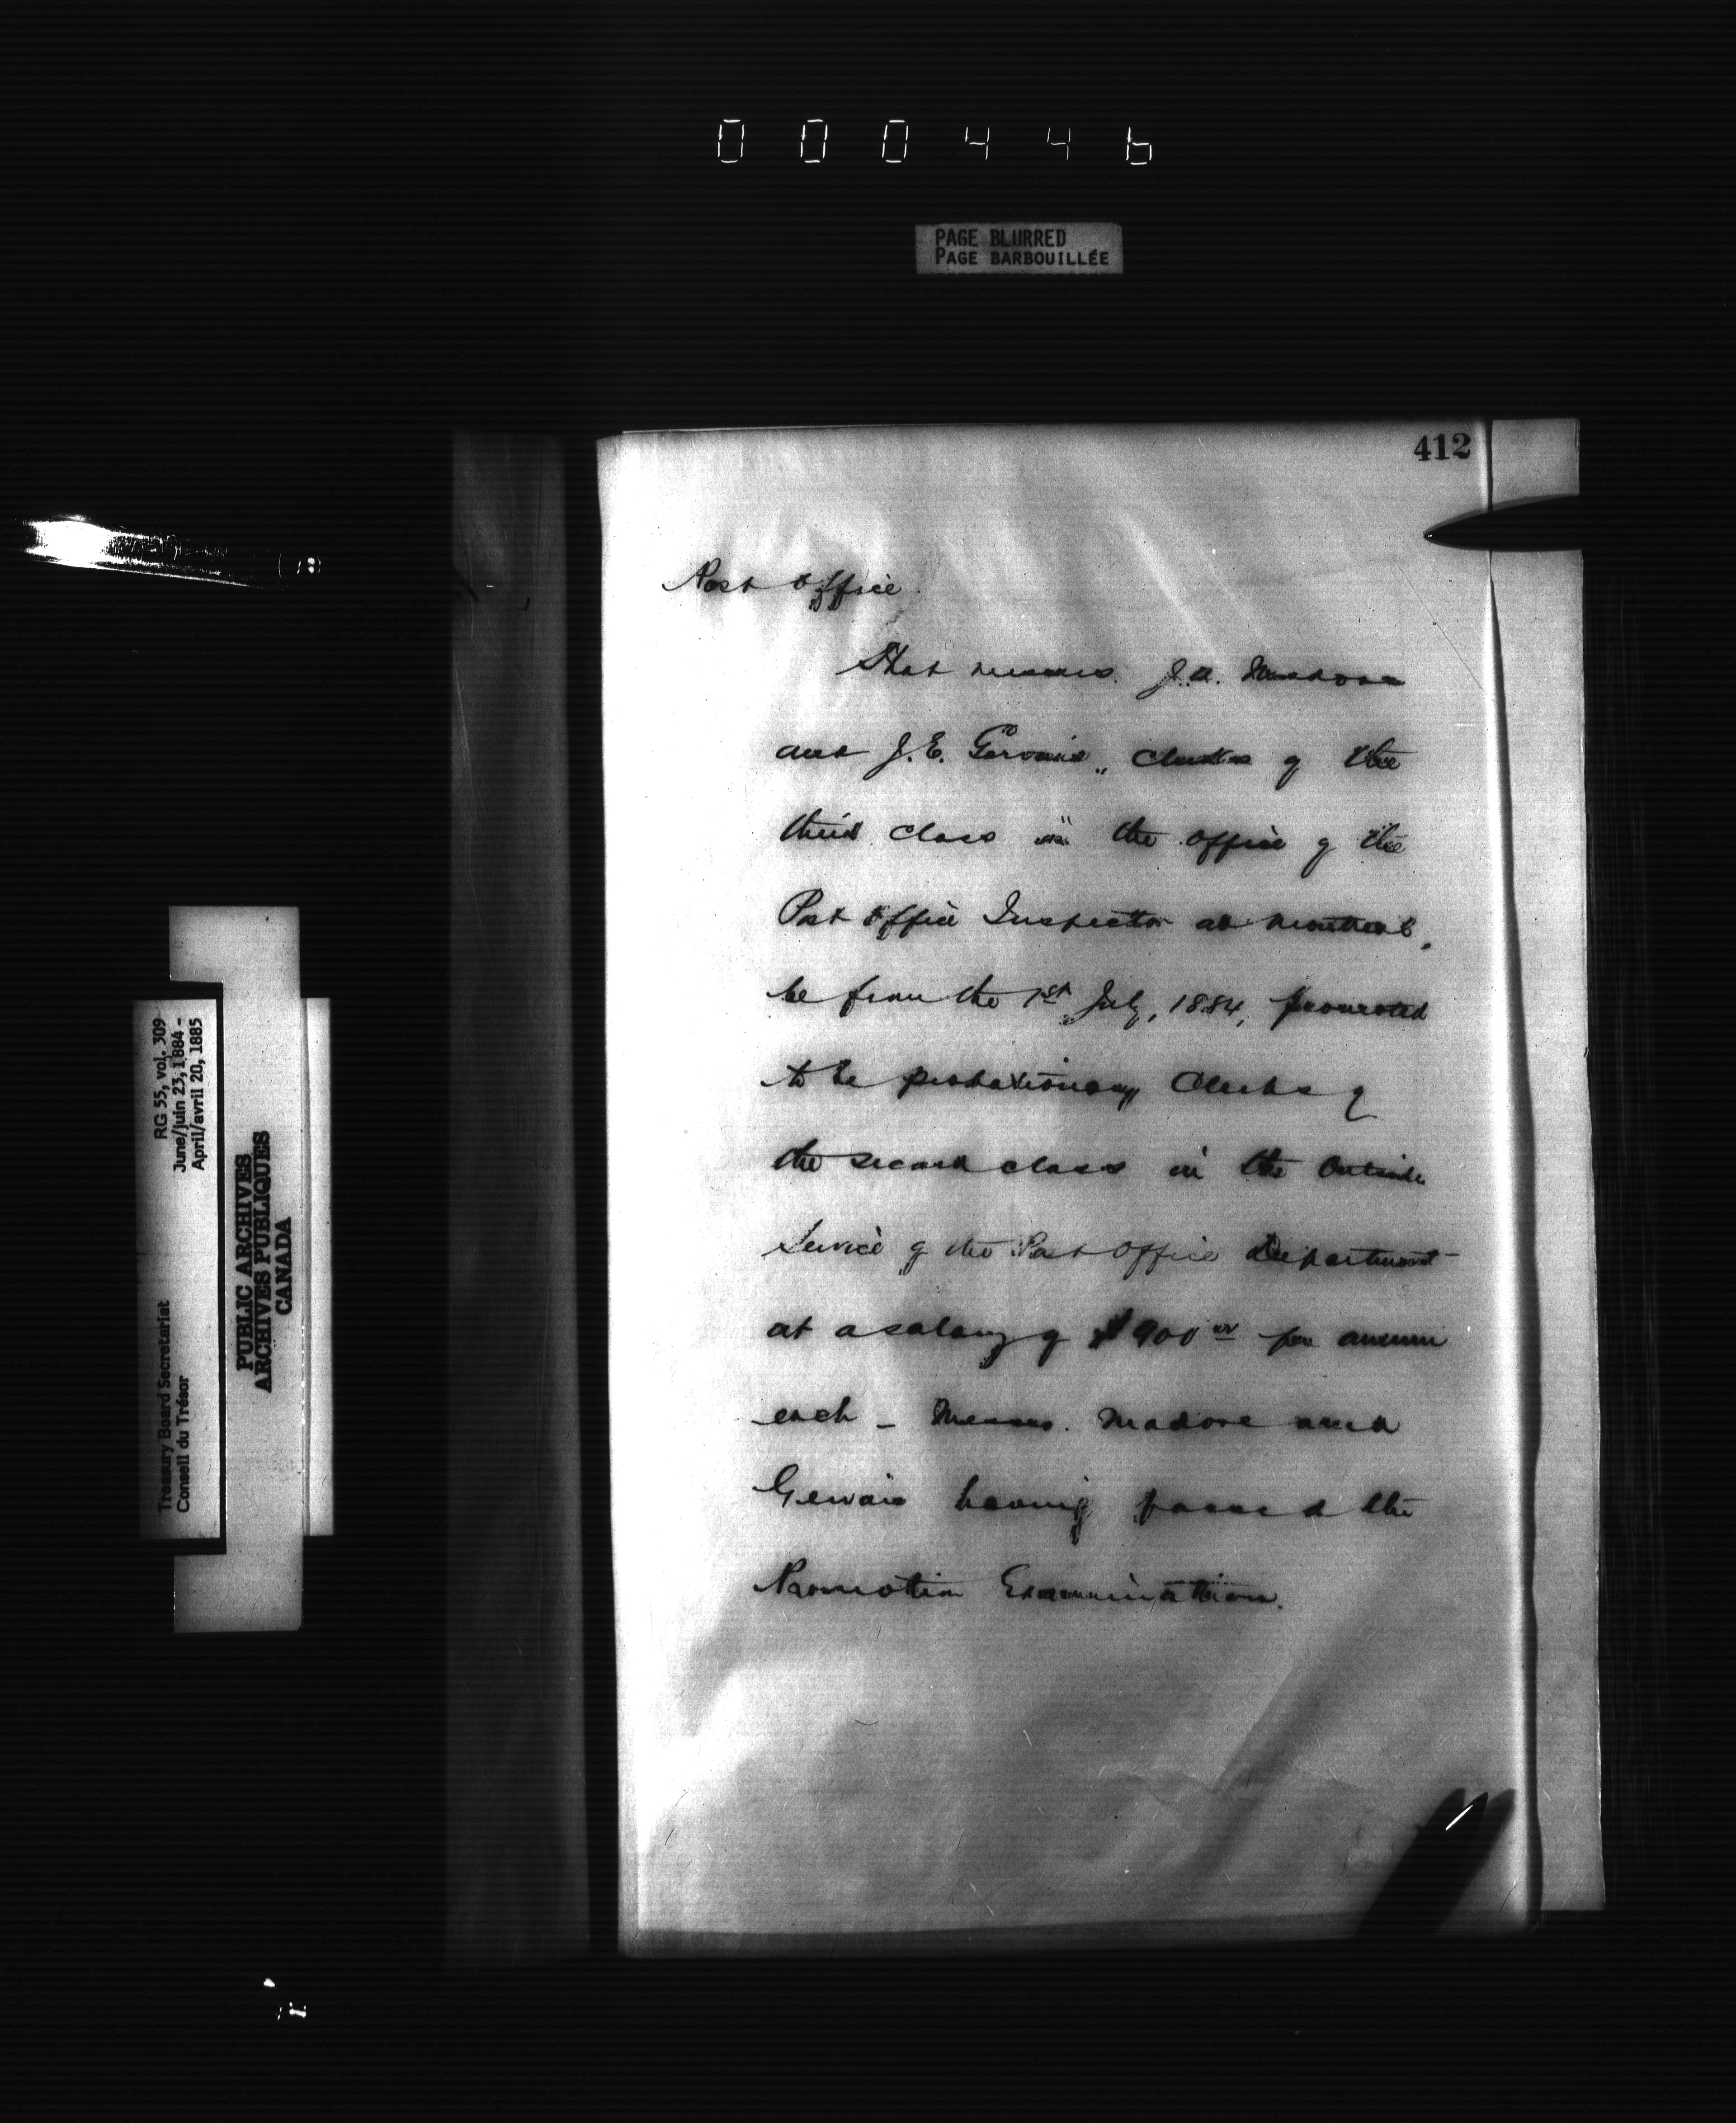 000446
PAGE BLURRED
PAGE BARBOUILLÉE
412
Post Office.
That Messrs. J.A. Madore
and J.E. Gervais, Clerks of the
third class in the office of the
Post Office Inspector at Montreal,
be from the 1st July, 1884, promoted
to be probationary Clerks of
the second class in the Outside
Service of the Post Office Department
at a salary of $900 00 per annum
each - Messrs. Madore and
Gervais having passed the
Promotion Examination.
RG 55, vol. 309
June/juin 23, 1884 -
April/avril 20, 1885
Treasury Board Secretariat
Conseil du Trésor
PUBLIC ARCHIVES
ARCHIVES PUBLIQUES
CANADA